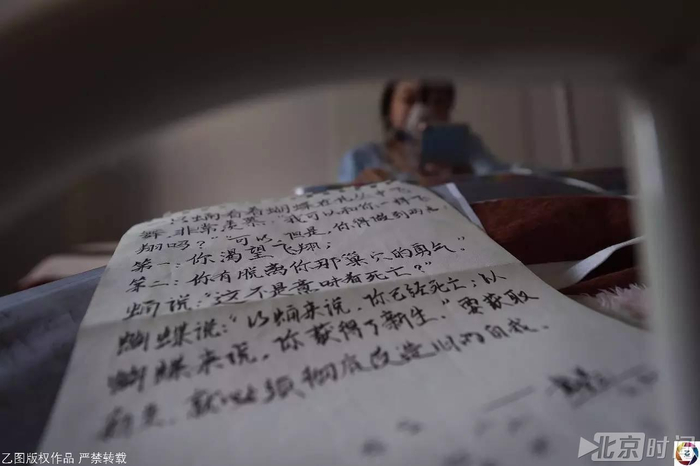 蛹看着蝴蝶在花丛中飞
舞,非常羡慕:“我可以和你一样飞
翔吗?”“可以,但是,你得做到两点
第一:你渴望飞翔;
第二:你有脱离你那巢穴的勇气。”
蛹说:“这不是意味着死亡?”
蝴蝶说:“以蛹来说,你已经死亡;以
蝴蝶来说,你获得了新生。”要获取
新生,就必须彻底改造旧的自我.
乙图版权作品 严禁转载
北京时间